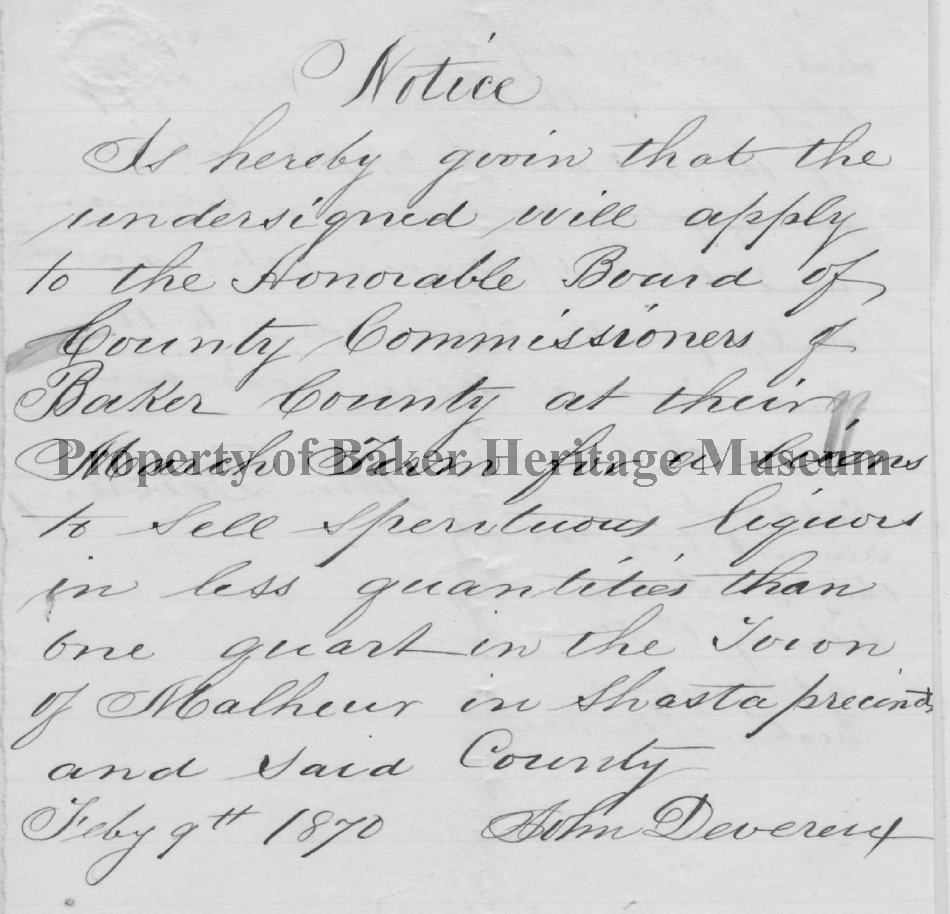 Notice
Is hereby givin that the
undersigned will apply
to the Honorable Board of
County Commissioners of
Baker County at their
March Term for a licens
Property of Baker Heritage Museum
to sell sperituous liquors
in less quantities than
one quart in the Town
of Malheur in Shasta precinct
and said County
Feby 9th 1870 John Devereux